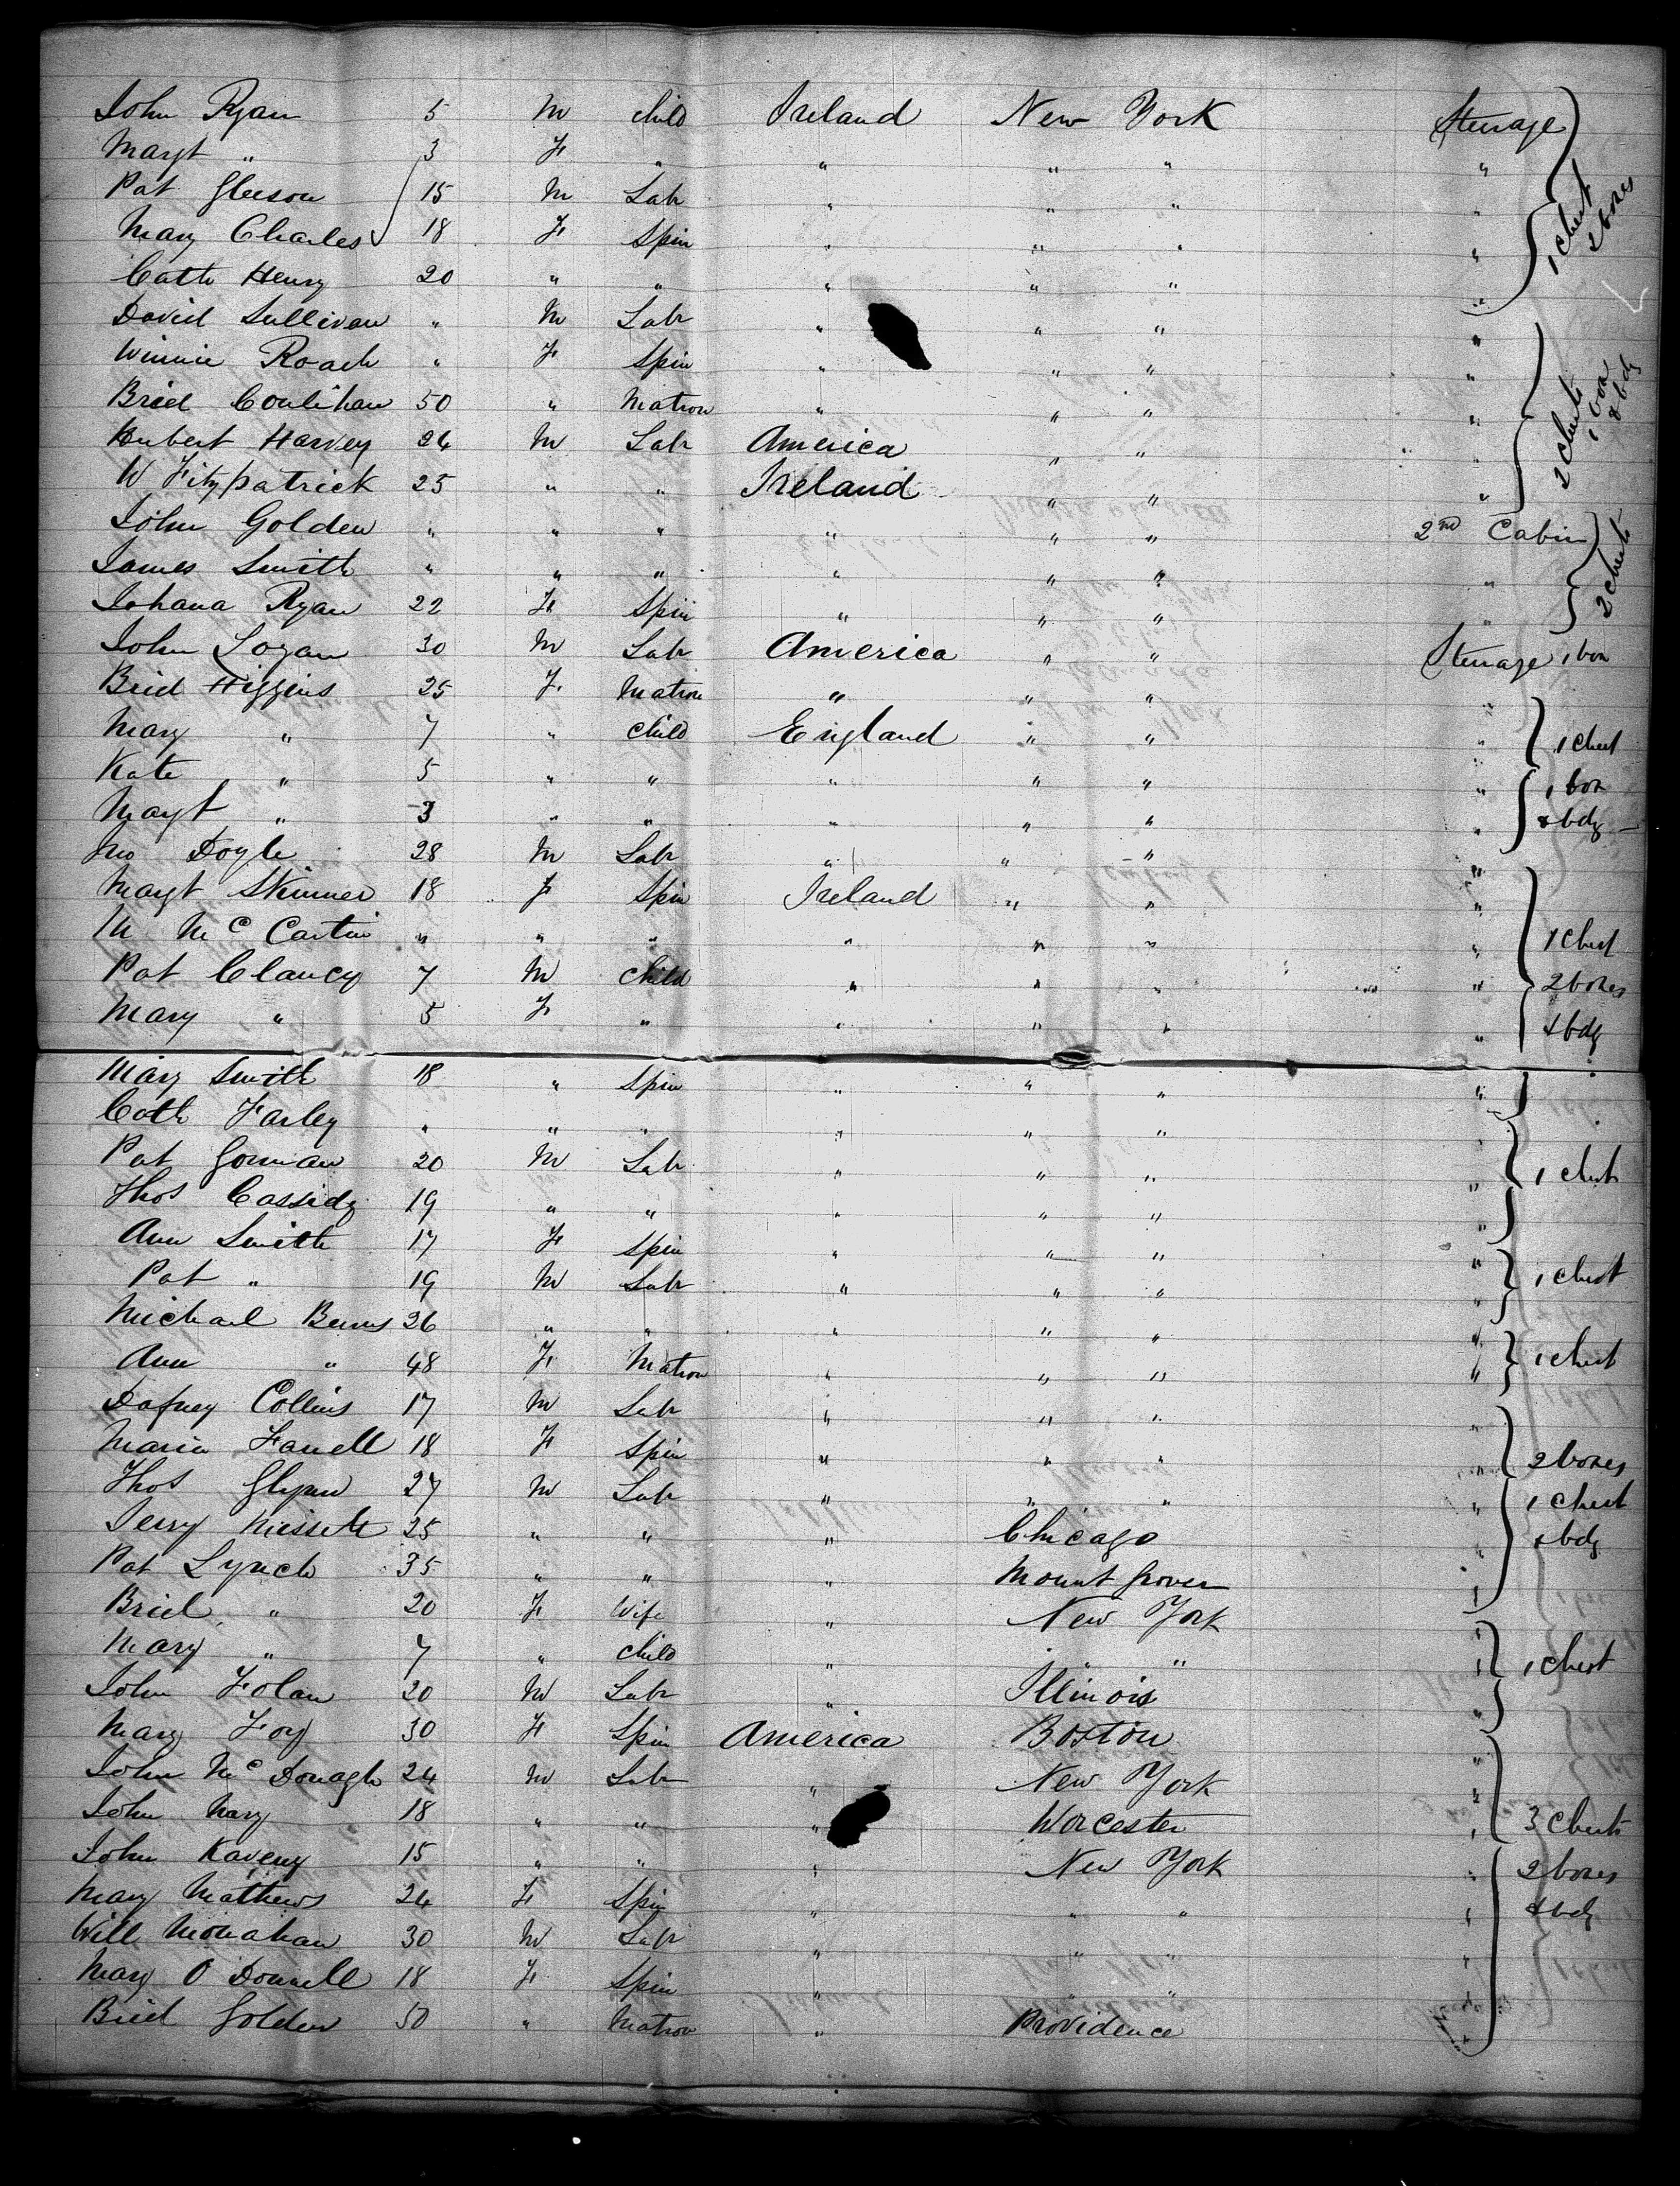 John Ryan 5 M child Ireland New York Steerage
Margt " 3 F " " " " "
Pat Gleeson 15 M Labr " " " "
Mary Charles 18 F Spin " " " " 1 Chest
Cath Henry 20 " " " " " " 2 boxes
David Sullivan " M Labr " " " "
Winnie Roach " F Spin " " " "
Brid Coulihan 50 " Matron " " " " 2 Chests
Hubert Harvey 24 M Labr America " " " 1 box
W Fitzpatrick 25 " " Ireland " " " & bdg
John Golden " " " " " " 2nd Cabin
James Smith " " " " " " " 2 Chests
Johana Ryan 22 F Spin " " " "
John Logan 30 M Labr America " " Steerage 1 box
Brid Higgins 25 F Matron " " " "
Mary " 7 " child England " " " 1 Chest
Kate " 5 " " " " " " 1 box
Margt " 3 " " " " " " & bdg
Jno Doyle 28 M Labr " " " "
Margt Skinner 18 F Spin Ireland " " "
M McCartin " " " " " " " 1 Chest
Pat Clancy 7 M Child " " " " 2 boxes
Mary " 5 F " " " " " & bdg
Mary Smith 18 " Spin " " " "
Cath Farley " " " " " " "
Pat Gorman 20 M Labr " " " " 1 Chest
Thos Cassidy 19 " " " " " "
Ann Smith 17 F Spin " " " "
Pat " 19 M Labr " " " " 1 Chest
Michael Burns 26 " " " " " "
Ann " 48 F Matron " " " " 1 Chest
Dafney Collins 17 M Labr " " " "
Maria Farrell 18 F Spin " " " " 2 boxes
Thos Glynn 27 M Labr " " " " 1 Chest
Jerry 25 " " " Chicago " & bdg
Pat Lynch 35 " " " Mount Grover "
Brid " 20 F Wife " New York "
Mary " 7 " child " " " " 1 Chest
John Folan 20 M Labr " Illinois "
Mary Foy 30 F Spin America Boston "
John McDonagh 24 M Labr " New York "
John Nary 18 " " " Worcester " 3 Chests
John Kaveny 15 " " " New York " 2 boxes
Mary Mathews 24 F Spin " " " " & bdg
Will Monahan 30 M Labr " " " "
Mary O Donnell 18 F Spin " " " "
Brid Golden 50 " Matron " Providence "